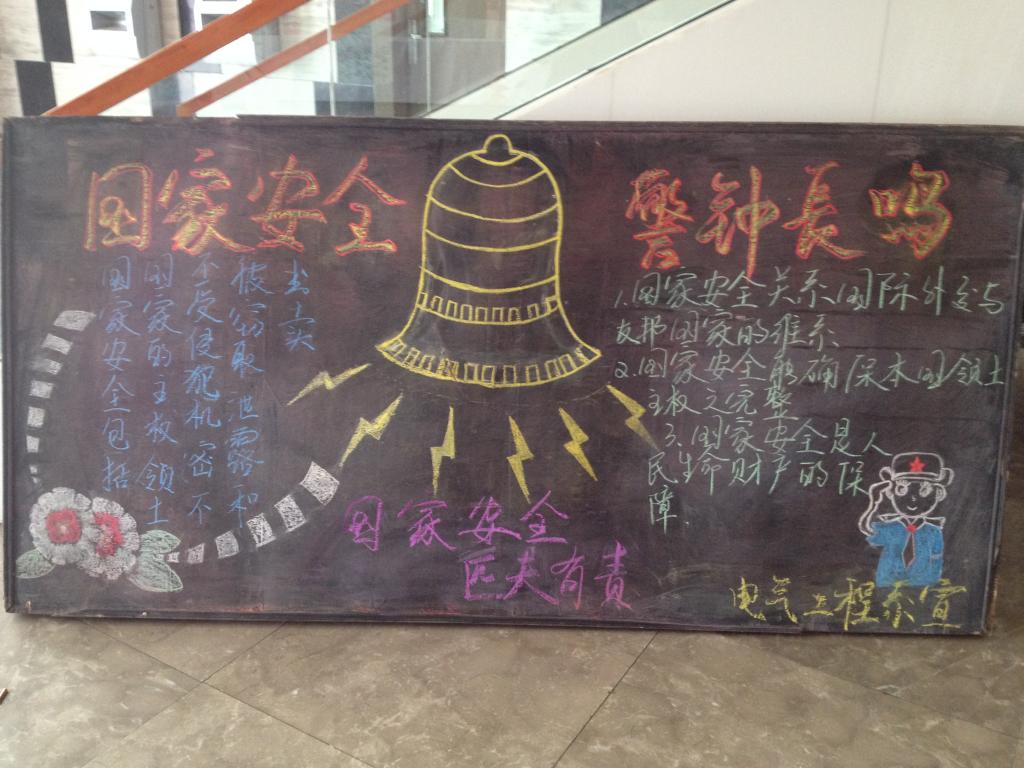 国家安全
警钟長鸣
国家安全包括
国家的主权领土
不受侵犯机密不
被窃取泄露和
出卖
1.国家安全关系国际外交与
友邦国家的维系
2.国家安全能确保本国领土
主权之完整
3.国家安全是人
民生命财产的保
障
国家安全
匹夫有责
电气工程系宣